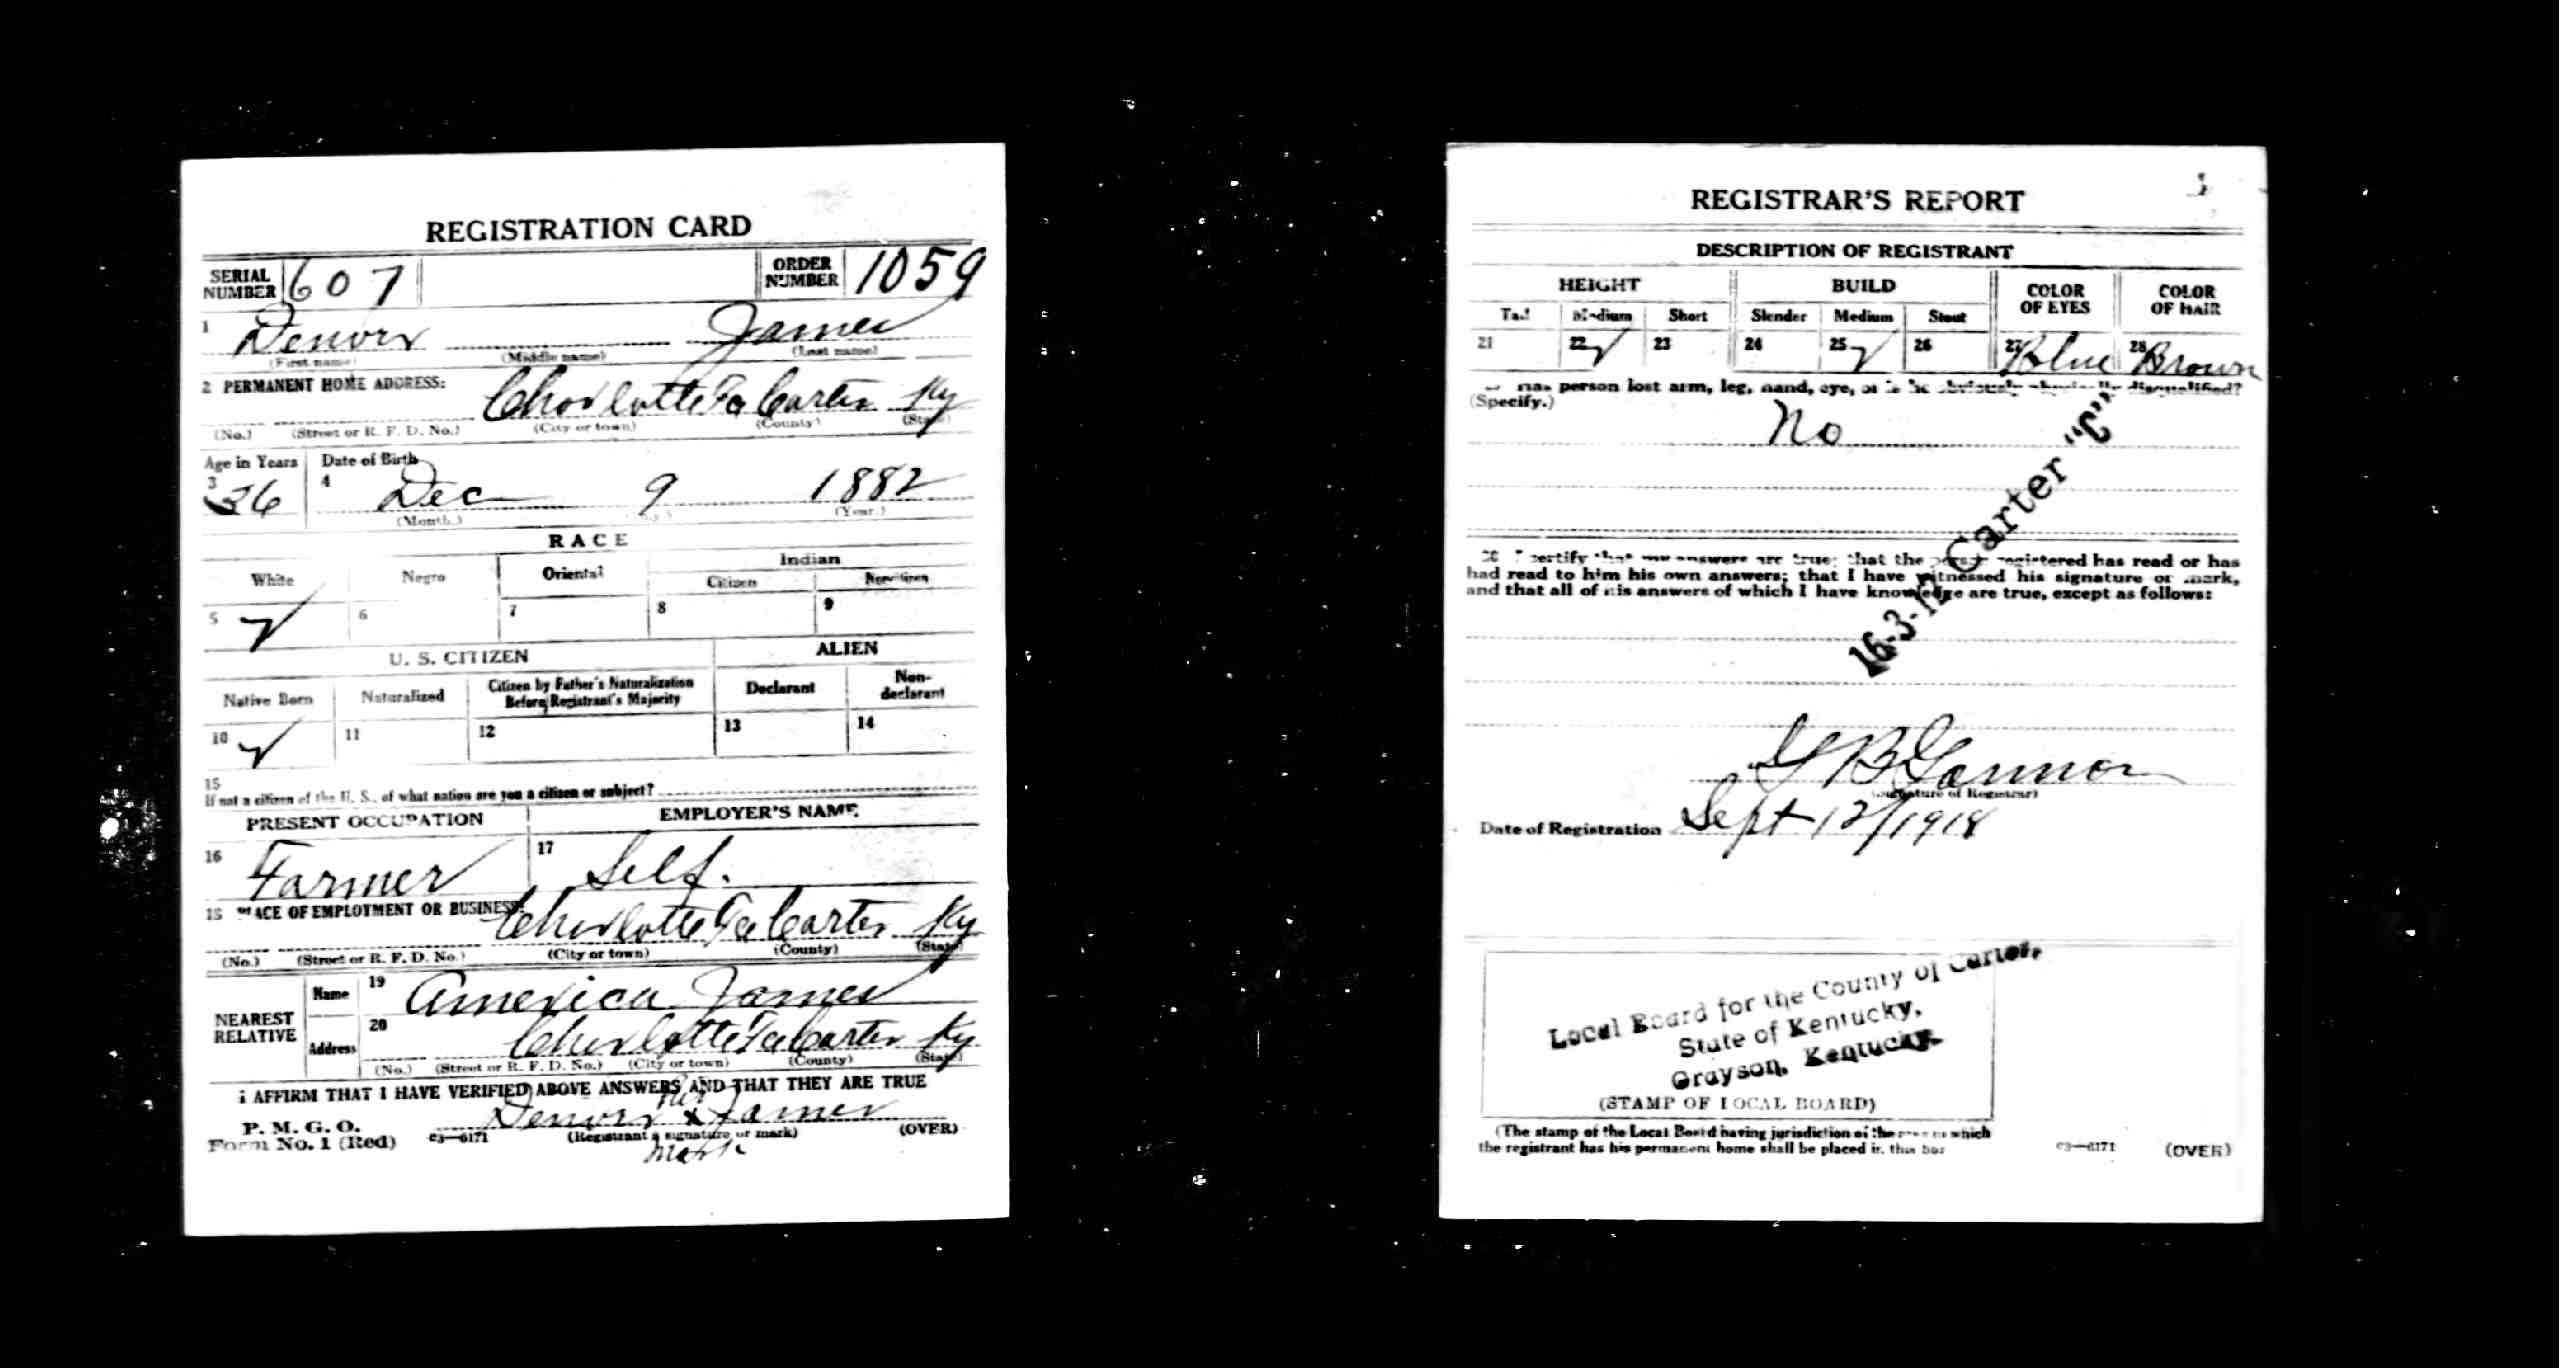 REGISTRATION CARD
SERIAL NUMBER 607 ORDER NUMBER 1059
1 Denver James
(First name) (Middle name) (Last name)
2 PERMANENT HOME ADDRESS:
Charlotte Fu Carter Ky
(No.) (Street or R. F. D. No.) (City or town) (County) (State)
Age in Years Date of Birth
3 36 4 Dec 9 1882
(Month.) (Day.) (Year.)
RACE
White Negro Oriental Indian
Citizen Noncitizen
5 ✓ 6 7 8 9
U. S. CITIZEN ALIEN
Native Born Naturalized Citizen by Father's Naturalization Before Registrant's Majority Declarant Non-declarant
10 ✓ 11 12 13 14
15
If not a citizen of the U. S., of what nation are you a citizen or subject?
PRESENT OCCUPATION EMPLOYER'S NAME
16 Farmer 17 Self.
18 PLACE OF EMPLOYMENT OR BUSINESS:
Charlotte Carter Ky
(No.) (Street or R. F. D. No.) (City or town) (County) (State)
NEAREST RELATIVE
Name 19 America James
Address 20 Charlotte Carter Ky
(No.) (Street or R. F. D. No.) (City or town) (County) (State)
I AFFIRM THAT I HAVE VERIFIED ABOVE ANSWERS AND THAT THEY ARE TRUE
his
P. M. G. O. Denver x James
Form No. 1 (Red) 03—6171 (Registrant's signature or mark) (OVER)
mark
REGISTRAR'S REPORT
DESCRIPTION OF REGISTRANT
HEIGHT BUILD COLOR OF EYES COLOR OF HAIR
Tall Medium Short Slender Medium Stout
21 22 ✓ 23 24 25 ✓ 26 27 Blue 28 Brown
29 Has person lost arm, leg, hand, eye, or is he obviously physically disqualified?
(Specify.)
No
16-3-12 Carter "C"
30 I certify that my answers are true; that the person registered has read or has
had read to him his own answers; that I have witnessed his signature or mark,
and that all of his answers of which I have knowledge are true, except as follows:
B Gannon
(Signature of Registrar)
Date of Registration Sept 12/1918
Local Board for the County of Carter,
State of Kentucky,
Grayson, Kentucky.
(STAMP OF LOCAL BOARD)
(The stamp of the Local Board having jurisdiction of the area in which
the registrant has his permanent home shall be placed in this box
03—6171 (OVER)